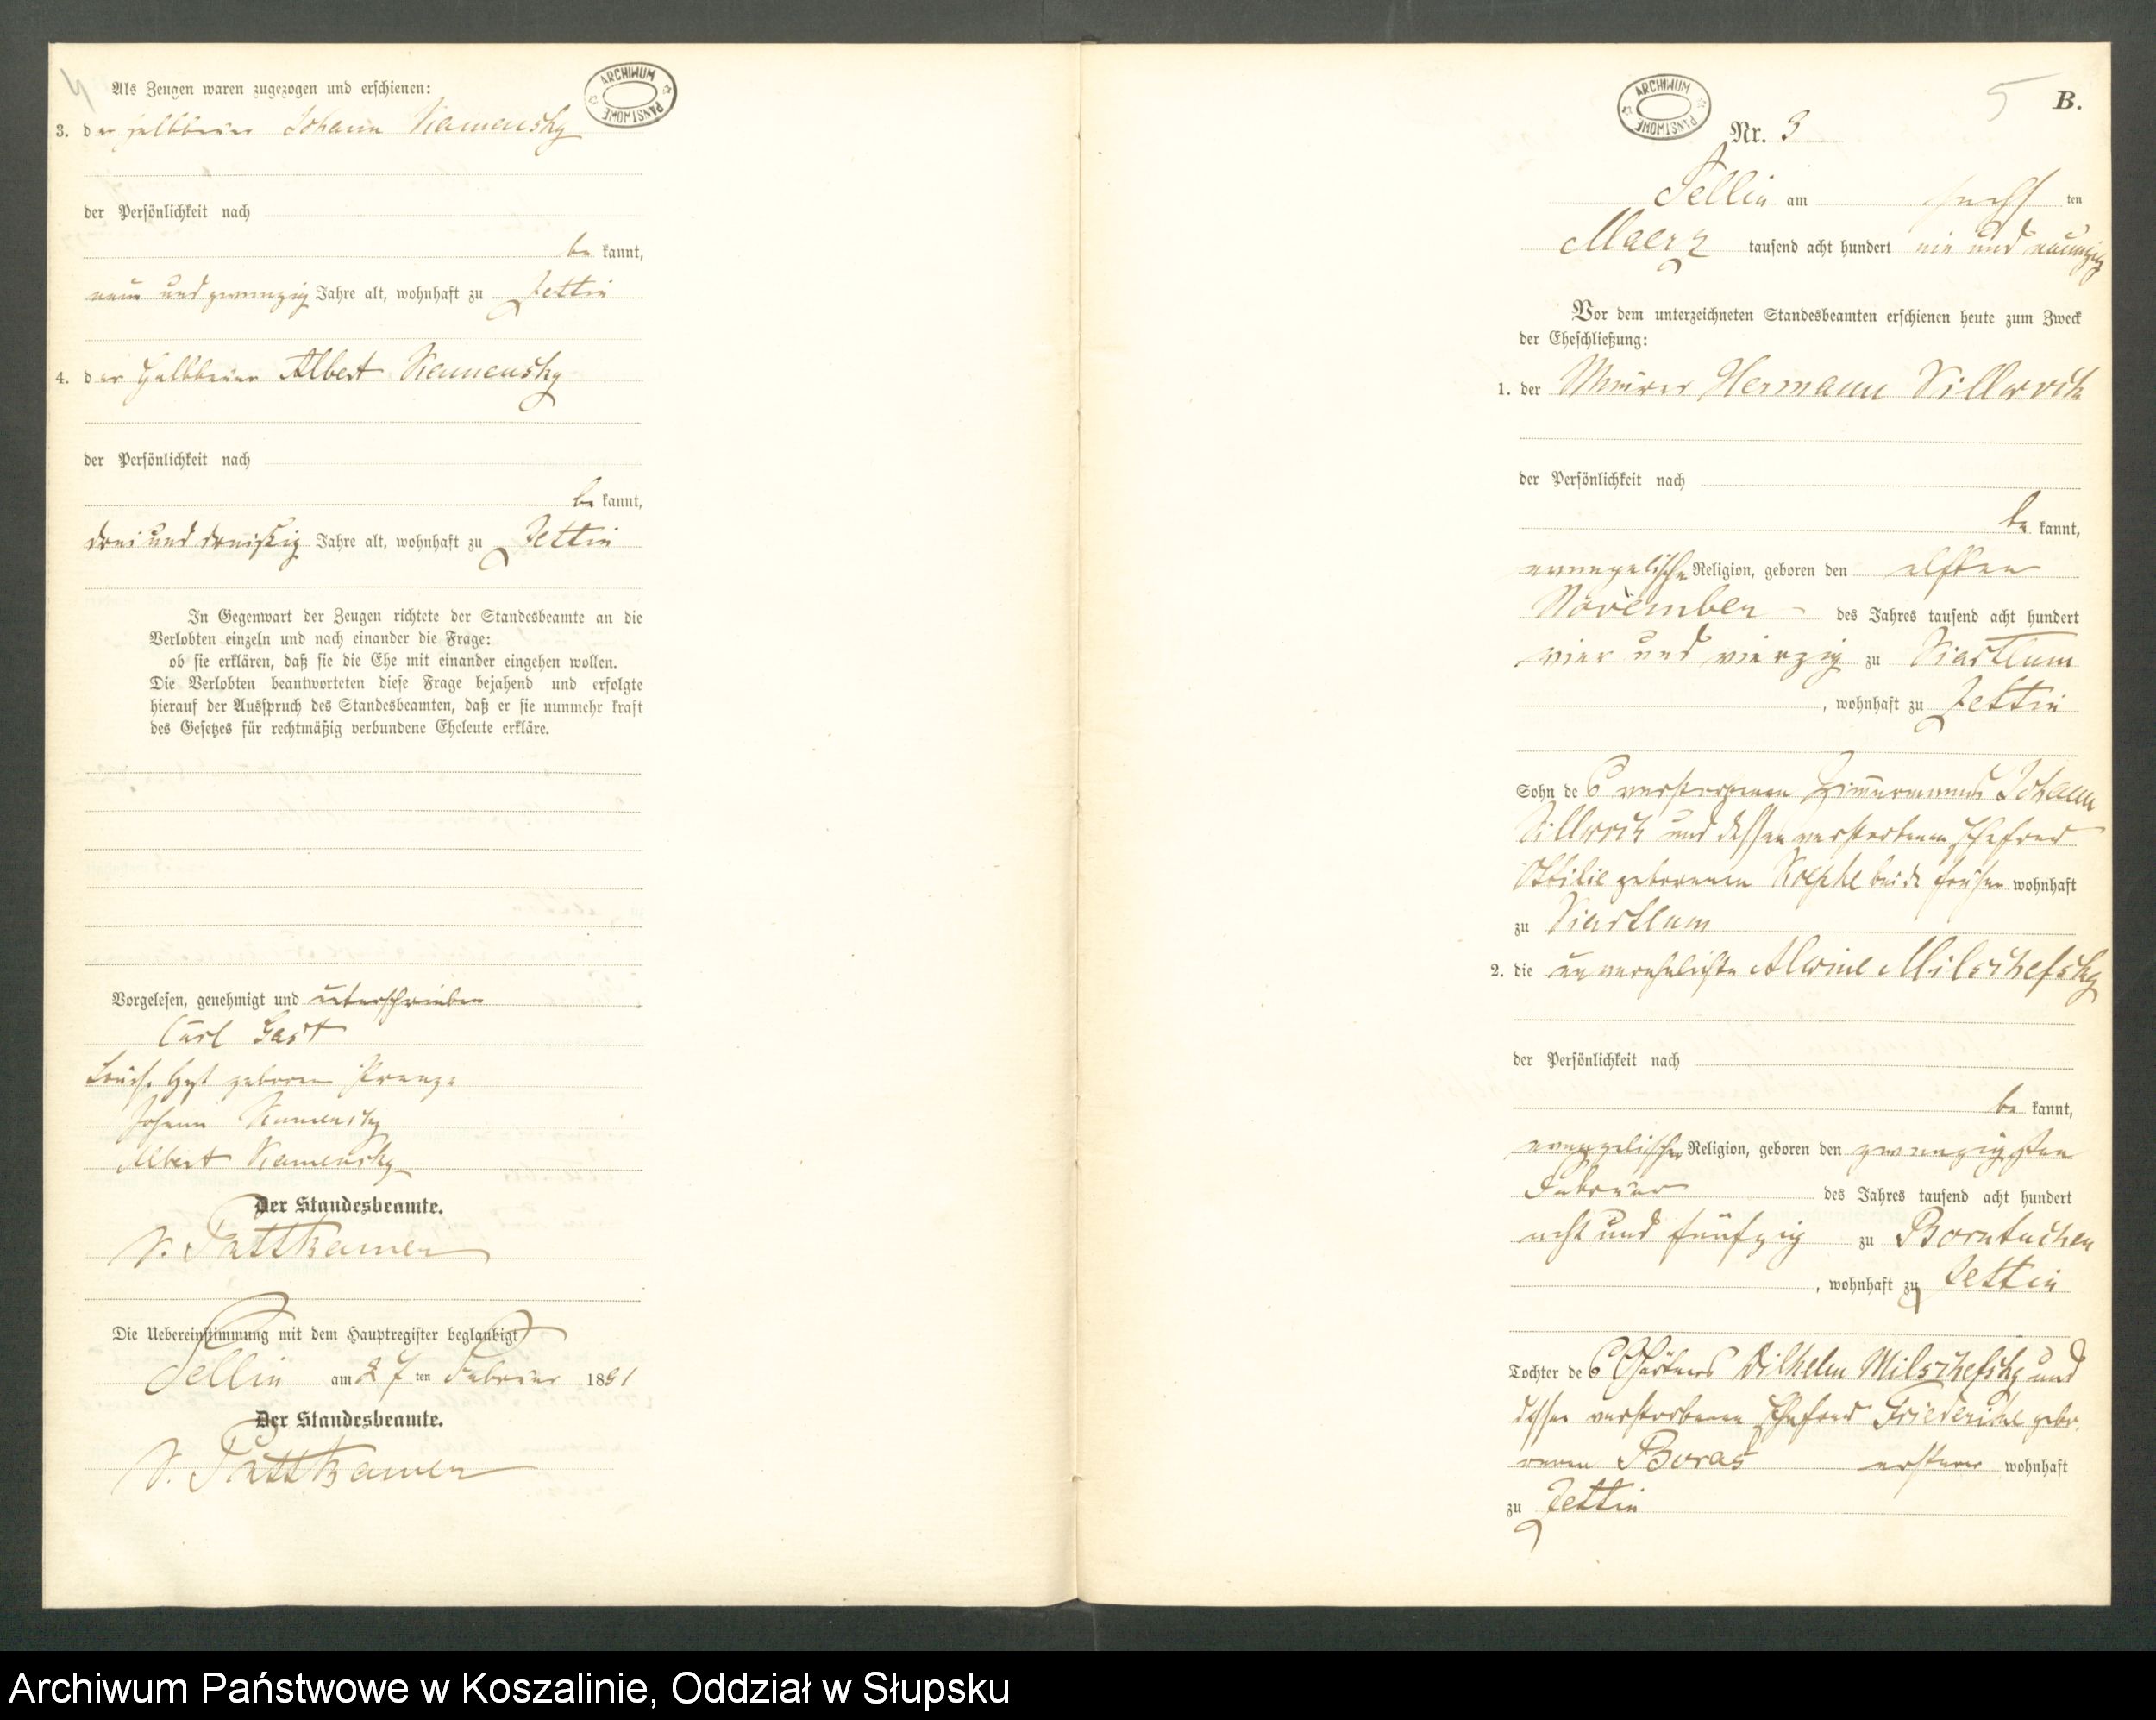 4
Als Zeugen waren zugezogen und erschienen:
ARCHIWUM PAŃSTWOWE
3. der Halbbauer Johann Kamensky
der Persönlichkeit nach
be kannt,
neun und zwanzig Jahre alt, wohnhaft zu Zettin
4. der Halbbauer Albert Kamensky
der Persönlichkeit nach
be kannt,
drei und dreißig Jahre alt, wohnhaft zu Zettin
In Gegenwart der Zeugen richtete der Standesbeamte an die
Verlobten einzeln und nach einander die Frage:
ob sie erklären, daß sie die Ehe mit einander eingehen wollen.
Die Verlobten beantworteten diese Frage bejahend und erfolgte
hierauf der Ausspruch des Standesbeamten, daß er sie nunmehr kraft
des Gesetzes für rechtmäßig verbundene Eheleute erkläre.
Vorgelesen, genehmigt und unterschrieben
Carl Gast
geborene
Johann Kamensky
Albert Kamensky
Der Standesbeamte.
v. Puttkamer
Die Uebereinstimmung mit dem Hauptregister beglaubigt
Sellin am 27 ten Februar 1891
Der Standesbeamte.
v. Puttkamer
5
B.
ARCHIWUM PAŃSTWOWE
Nr. 3
Sellin am ten
Maerz tausend acht hundert ein und neunzig
Vor dem unterzeichneten Standesbeamten erschienen heute zum Zweck
der Eheschließung:
1. der Maurer Hermann
der Persönlichkeit nach
be kannt,
evangelischer Religion, geboren den elften
November des Jahres tausend acht hundert
vier und vierzig zu
, wohnhaft zu Zettin
Sohn des verstorbenen Zimmermanns Johann
und dessen verstorbenen Ehefrau
Ottilie geborenen beide früher wohnhaft
zu
2. die unverehelichte Alwine Milschefsky
der Persönlichkeit nach
be kannt,
evangelischer Religion, geboren den zwanzigsten
Februar des Jahres tausend acht hundert
acht und fünfzig zu Borntuchen
, wohnhaft zu Zettin
Tochter des Gärtners Wilhelm Milschefsky und
dessen verstorbenen Ehefrau Friederike gebo-
renen Boras ersterer wohnhaft
zu Zettin
Archiwum Państwowe w Koszalinie, Oddział w Słupsku